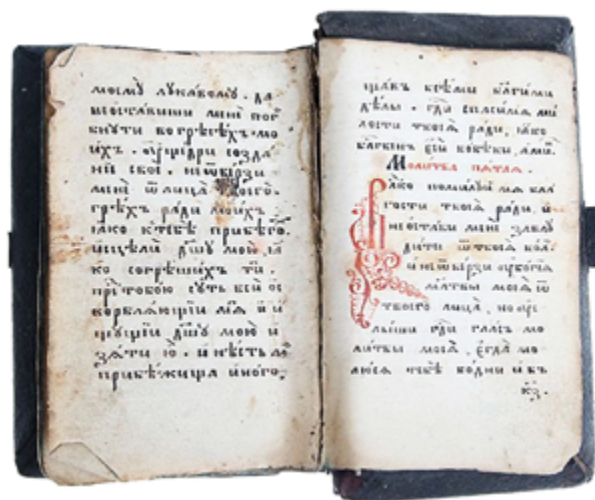 моемꙋ лꙋка́вомꙋ . да
не ѡста́виши менѐ поги
кнꙋти во грѣсѣ́хъ мо
и́хъ . ᲂу҆ще́дри созда́
нїе своѐ . не ѿве́рзи
менѐ ѿ лица̀ твоегѡ̀
грѣ́хъ ра́ди мои́хъ
ꙗ҆́кѡ к тебѣ̀ прибѣго́хъ
и҆сцѣлѝ дш҃ꙋ мою̀, ꙗ҆́
кѡ согрѣши́хъ ти .
пред̾ тобо́ю сꙋ́ть всѝ ѡс
корблѧ́ющїи мѧ̀ и҆ и҆́
щꙋщїи дш҃ꙋ мою̀ и҆
взѧ́ти ю҆̀ . и҆ нѣ́сть мѝ
прибѣ́жища и҆но́гѡ,
ща́въ всѣ́ми бл҃ги́ми
дѣ́лы . гдⷭ҇и ми
лости твоеѧ̀ ра́ди, ꙗ҆́кѡ
бл҃гве́нъ є҆сѝ во вѣ́ки, а҆ми́нь
Моли́тва пѧ́таѧ .
Влⷣко поми́лꙋй мѧ̀ бла́
гости твоеѧ̀ ра́ди, и҆
не ѡста́ви менѐ заблꙋ
ди́ти ѿ твоеѧ̀ во́лѧ
и҆ не ѿве́рзи ᲂу҆бо́гїѧ
мл҃твы моеѧ̀ ѿ
твоегѡ̀ лица̀, но ᲂу҆с
лы́ши гдⷭ҇и гла́съ мо
ли́твы моеѧ̀ . є҆гда̀ мо
лю́сѧ тебѣ̀ во днѝ и҆ въ
к҃з.